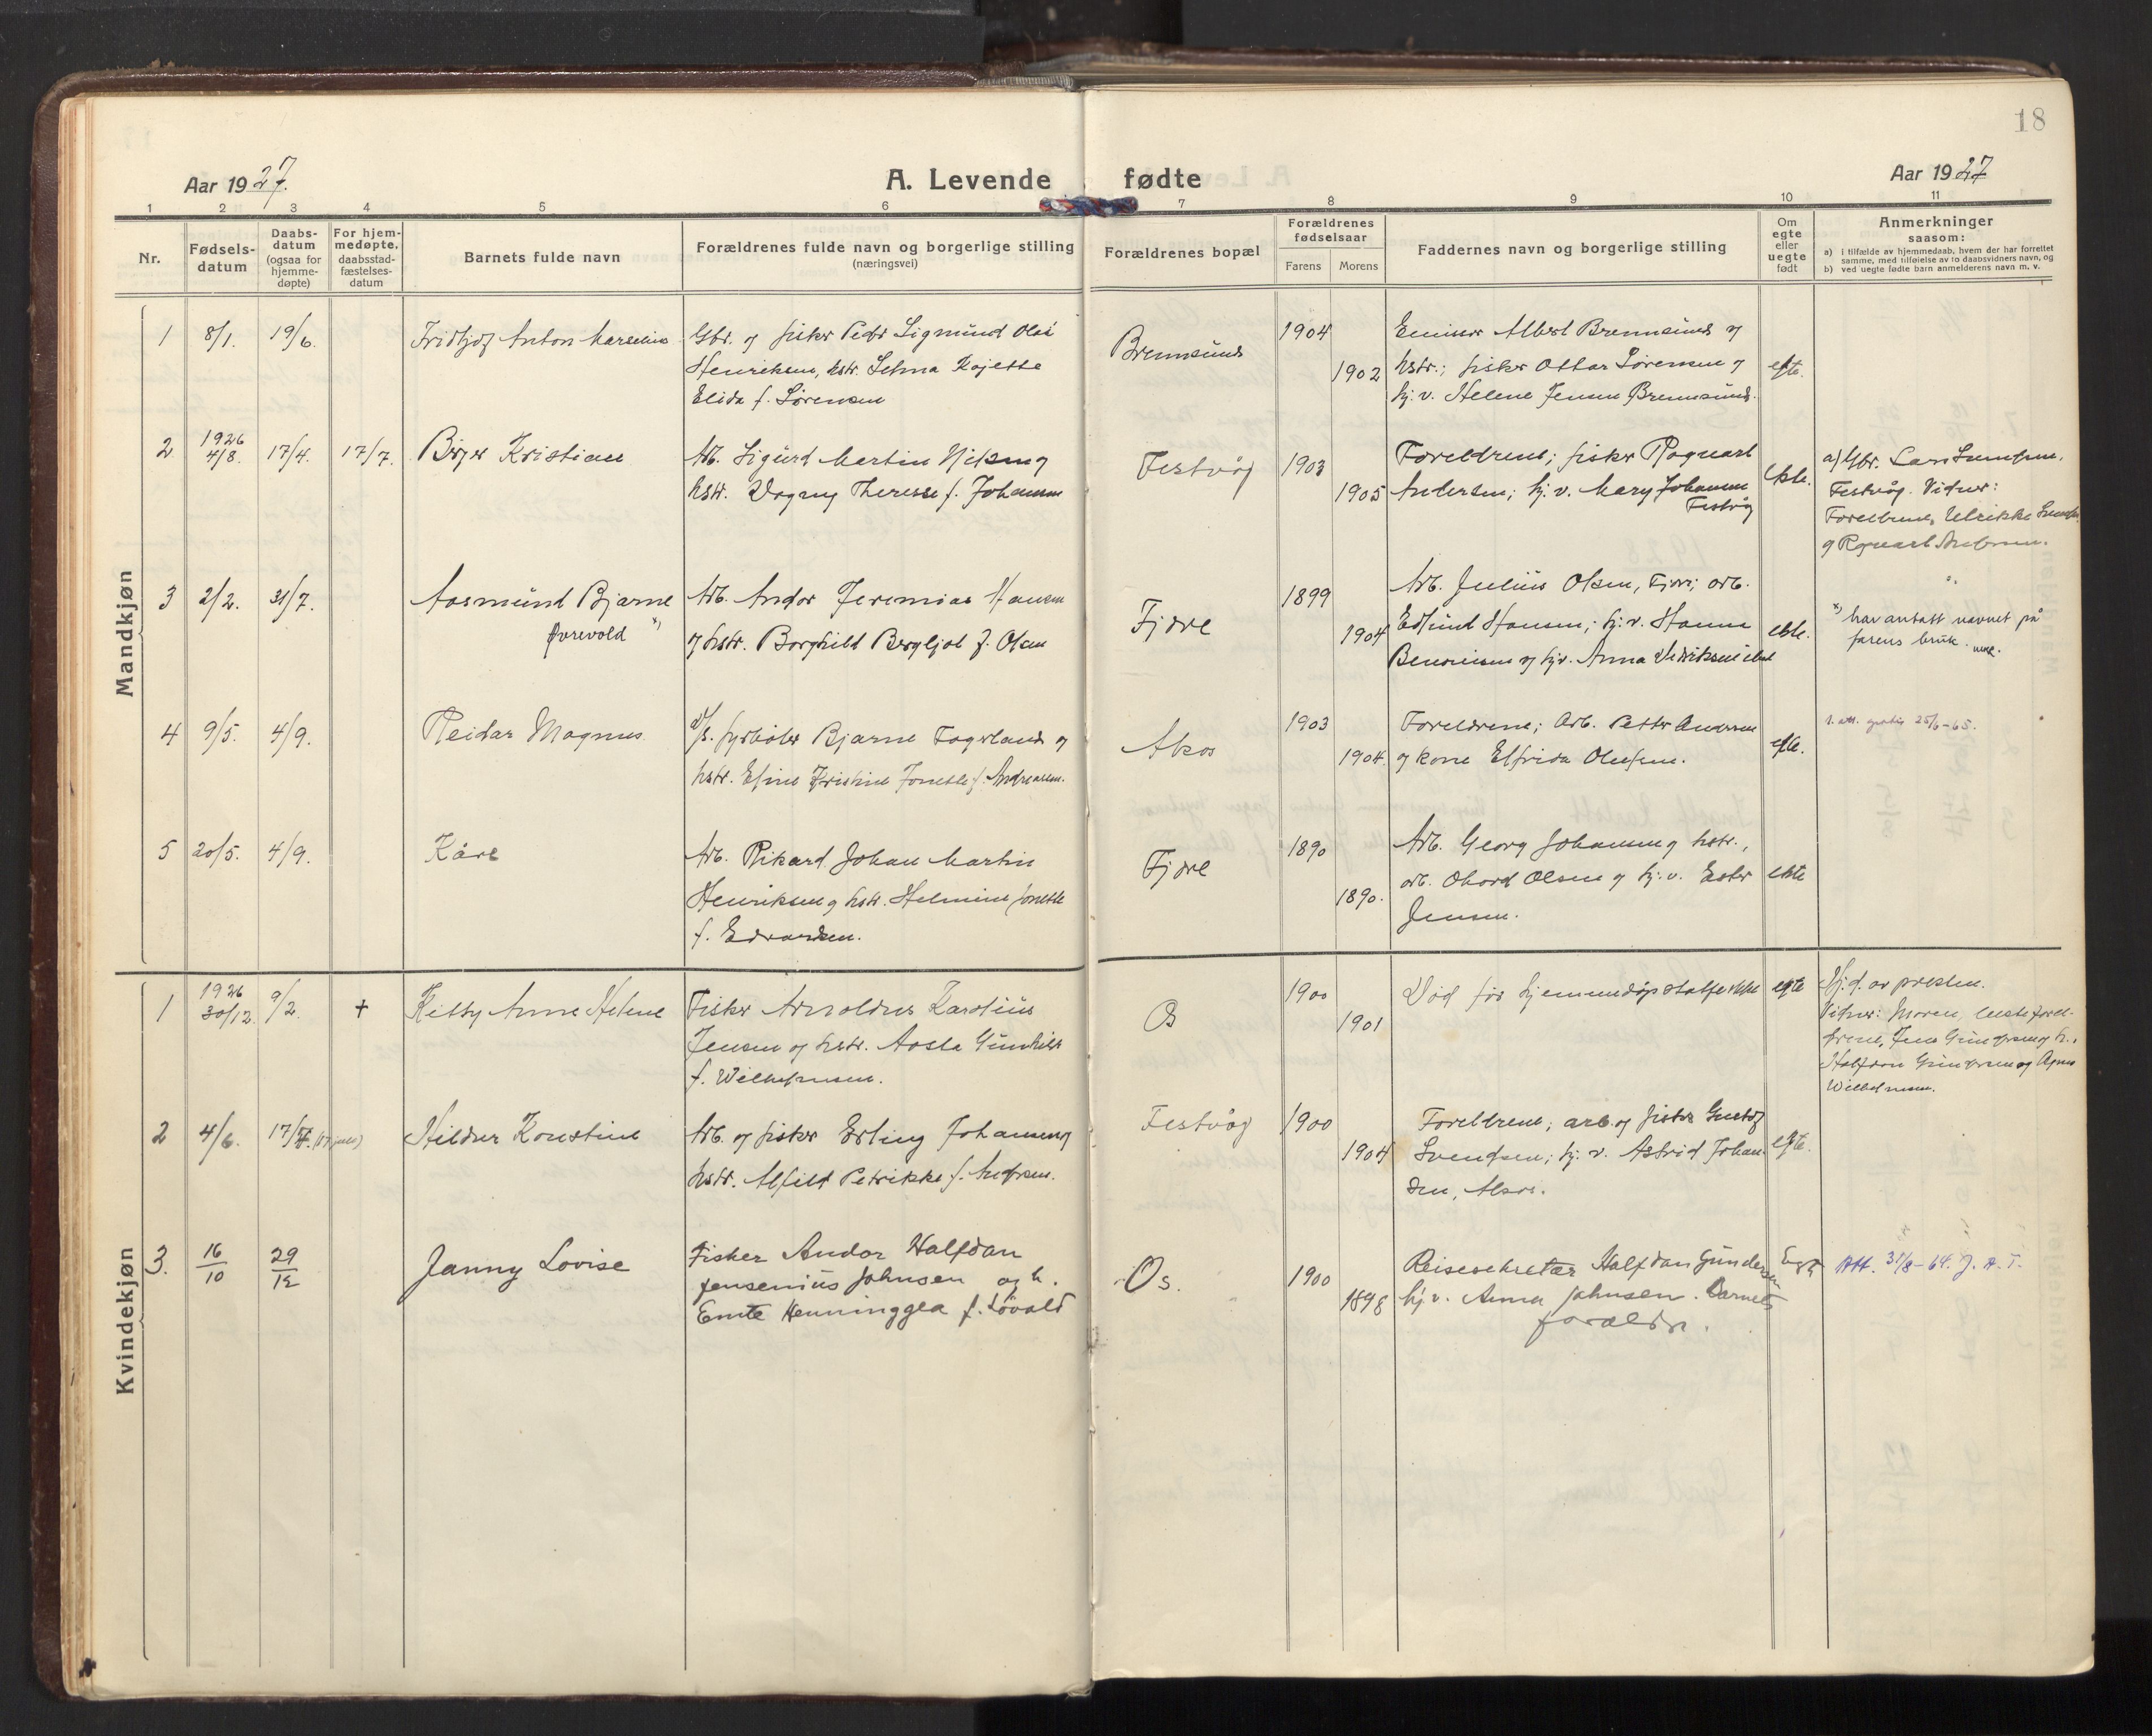 18
Aar 1927.
A. Levende fødte
Aar 1927
1 2 3 4 5 6 7 8 9 10 11
Nr.
Fødsels-
datum
Daabs-
datum
(ogsaa for
hjemme-
døpte)
For hjem-
medøpte,
daabsstad-
fæstelses-
datum
Barnets fulde navn
Forældrenes fulde navn og borgerlige stilling
(næringsvei)
Forældrenes bopæl
Forældrenes
fødselsaar
Farens Morens
Faddernes navn og borgerlige stilling
Om
egte
eller
uegte
født
Anmerkninger
saasom:
a) i tilfælde av hjemmedaab, hvem der har forrettet
samme, med tilføielse av to daabsvidners navn, og
b) ved uegte fødte barn anmelderens navn m. v.
Mandkjøn
1 8/1. 19/6. Fridtjof Anton Marselius
Gbr. og fisker Peder Sigmund Olai
Henriksen, hstr. Selma Kajette
Elida f. Sørensen
Brennsund
1904
1902
Emissær Albert Brennsund og
hstr.; fisker Ottar Sørensen og
pj. v. Helene Jensen Brennsund.
egte.
2 1926
4/8. 17/4. 17/7. Birger Kristian
Arb. Sigurd Martin Nilsen og
hstr. Dagny Theresse f. Johansen
Festvåg
1903
1905
Foreldrene; fisker Ragnvart
Andersen; pj. v. Mary Johansen
Festvåg
ekte.
a) Gbr. Lars
Festvåg. Vidner:
Foreldrene, Ulrikke
og
3 2/2. 31/7. Aasmund Bjarne
Øvrevold x)
Arb. Andor Jeremias Hansen
og hstr. Borghild Bergljot f. Olsen
Fjære
1899
1904
Arb. Julius Olsen, Fjære; arb.
Edmund Hansen; pj. v. Hanna
Benonisen og pj. v. Anna
ekte.
x) har antatt navnet på
farens bruk.
4 9/5. 4/9. Reidar Magnus
D/s. fyrbøter Bjarne Fagerland og
hstr. Efine Kristine Jonette f. Andreassen.
Alsos
1903
1904.
Foreldrene; Arb. Petter Andersen
og kone Elfrida Olufsen.
egte.
1. att. gratis 25/6-65.
5 20/5. 4/9. Kåre
Arb. Rikard Johan Martin
Henriksen og hstr. Helmine Jonette
f. Edvardsen.
Fjære
1890
1890.
Arb. Georg Johansen og hstr.,
arb. Olsen og pj. v. Ester
Jensen.
ekte
Kvindekjøn
1 1926
30/12. 9/2. + Kitty Anne Helene
Fisker Arnoldus Karolius
Jensen og hstr. Aasta Gunhild
f. Wilhelmsen.
Os
1900
1901
Død før hjemmedåp stadfestet
egte
Hj. d. av presten.
Vidner: Moren, besteforel-
drene, Jens Gundersen og h.,
Halfdan Gundersen og Agnes
Wilhelmsen.
2 4/6. 17/7. (17 juli) Hildur Konstine
Arb. og fisker Erling Johansen og
hstr. Alfild Petrikke f. Andersen.
Festvåg
1900
1904
Foreldrene; arb. og fisker Gustaf
Svendsen; pj. v. Astrid Johan-
sen, Alsos.
egte.
3. 16/10 29/12 Janny Lovise
Fisker Andor Halfdan
Jensenius Johnsen og h.
Emte Henninggea f. Løvold
Os.
1900
1898
Reisesekretær Halfdan Gundersen
pj. v. Anna Johnsen. Barnets
forældre.
Egte
Att. 31/8-64. J. A. T.